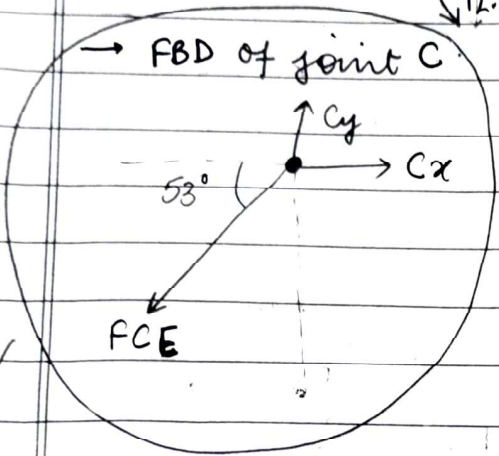 → FBD of joint C
Cy
Cx
53°
FCE